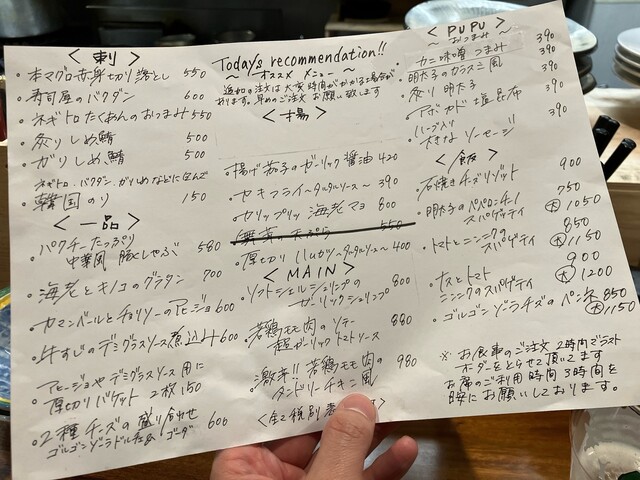 <刺>
・本マグロ赤身切り落とし 550
・寿司屋のバクダン 600
・ネギトロたくあんのおつまみ 550
・炙りしめ鯖 500
・ガリしめ鯖 500
ネギトロ・バクダン、ガリしめなどに包んで
・韓国のり 150
<一品>
・パクチーたっぷり
中華風 豚しゃぶ 580
・海老とキノコのグラタン 700
・カマンベールとチョリソーのアヒージョ 600
・牛すじのデミグラスソース煮込み 600
・アヒージョやデミグラスソース用に
厚切りバケット 2枚 150
・2種チーズの盛り合せ
ゴルゴンゾーラドルチェ& ゴーダ 600
Today's recommendation!!
～オススメ メニュー～
追加の注文は大変時間がかかる場合が
あります。早めのご注文お願い致します
<揚>
・揚げ茄子のガーリック醤油 420
・カキフライ～タルタルソース～ 390
・プリップリッ海老マヨ 800
天ぷら 550
・厚切りハムカツ～タルタルソース～ 400
<MAIN>
・ソフトシェルシュリンプの
ガーリックシュリンプ 800
・若鶏モモ肉のソテー
超ガーリックトマトソース 880
・激辛!! 若鶏モモ肉の
タンドリーチキン風 980
<全て税別
<PUPU>
～おつまみ～
・カニ味噌つまみ 390
・明太子のガラス風 390
・炙り明太子 390
・アボカド塩昆布 390
・ハーブ入り
大きなソーセージ 390
<飯>
・石焼きチーズリゾット 900
・明太子のペペロンチーノ
スパゲティ 750
大 1050
・トマトとニンニクの
スパゲティ 850
大 1150
・ナスとトマト
ニンニクのスパゲティ 900
大 1200
・ゴルゴンゾーラチーズのペンネ 850
大 1150
※お食事のご注文 2時間でラスト
オーダーをとらせて頂いてます
お席のご利用時間 3時間を
目安にお願いしております。